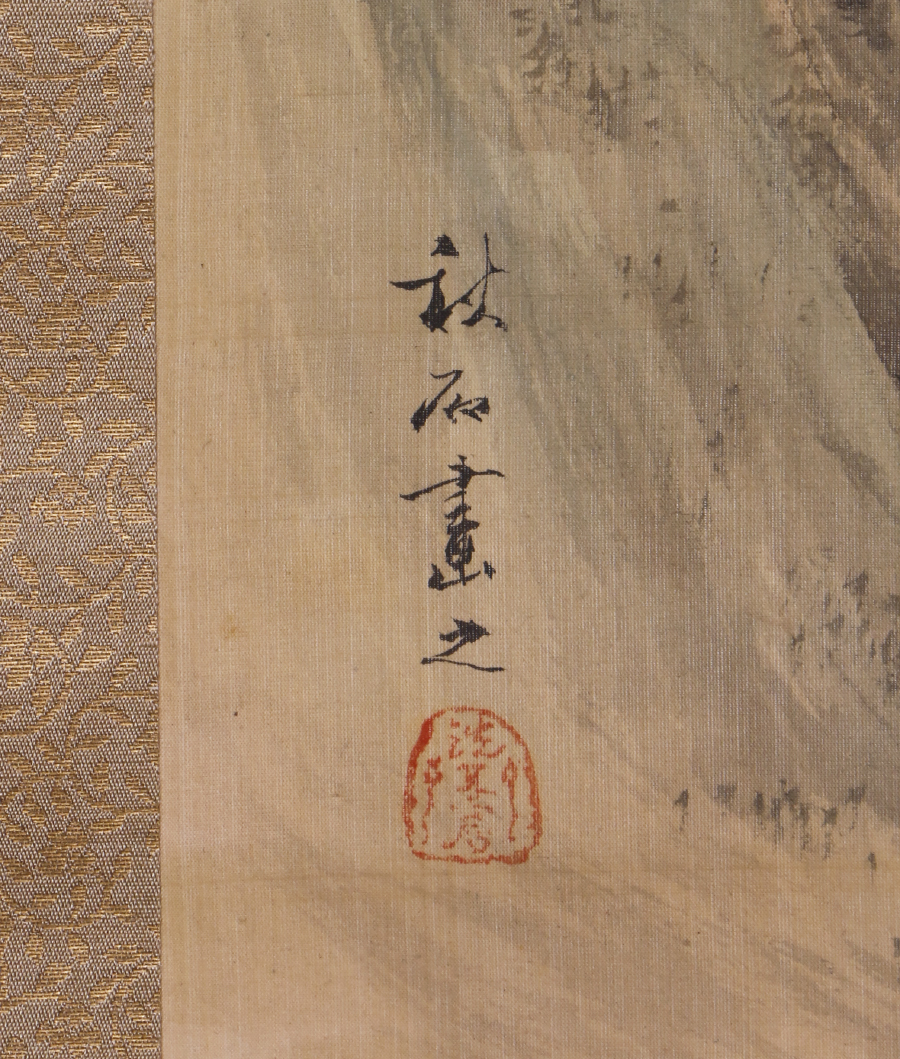 秋石畫之